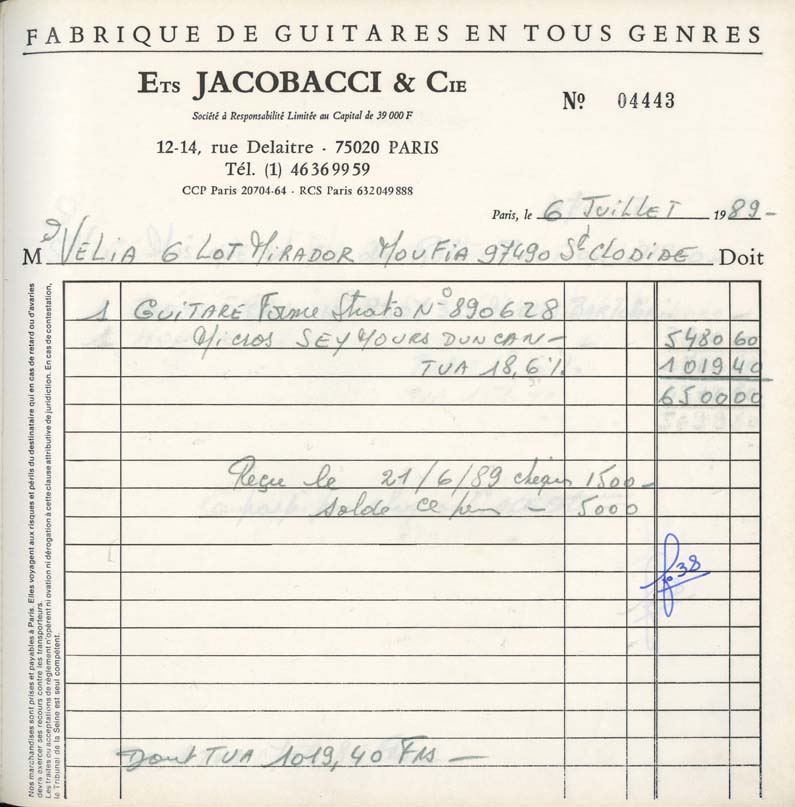 FABRIQUE DE GUITARES EN TOUS GENRES
ETS JACOBACCI & CIE
Nº 04443
Société à Responsabilité Limitée au Capital de 39 000 F
12-14, rue Delaitre - 75020 PARIS
Tél. (1) 46 36 99 59
CCP Paris 20704-64 - RCS Paris 632 049 888
Paris, le 6 JUILLET 1989-
M VELIA 6 LOT MIRADOR MOUFIA 97490 Ste CLODIDE Doit
1 GUITARE Forme Strato Nº 890628
Micros SEYMOURS DUNCAN- 5480 60
TUA 18,6% 1019 40
6500 00
Reçu le 21/6/89 cheque 1500-
solde ce jour - 5000
fº 38
Dont TUA 1019,40 Frs -
Nos marchandises sont prises et payables à Paris. Elles voyagent aux risques et périls du destinataire qui en cas de retard ou d'avaries
devra exercer ses recours contre les transporteurs.
Les traites ou acceptations de règlement n'opèrent ni ovation ni dérogation à cette clause attributive de juridiction. En cas de contestation,
le Tribunal de la Seine est seul compétent.